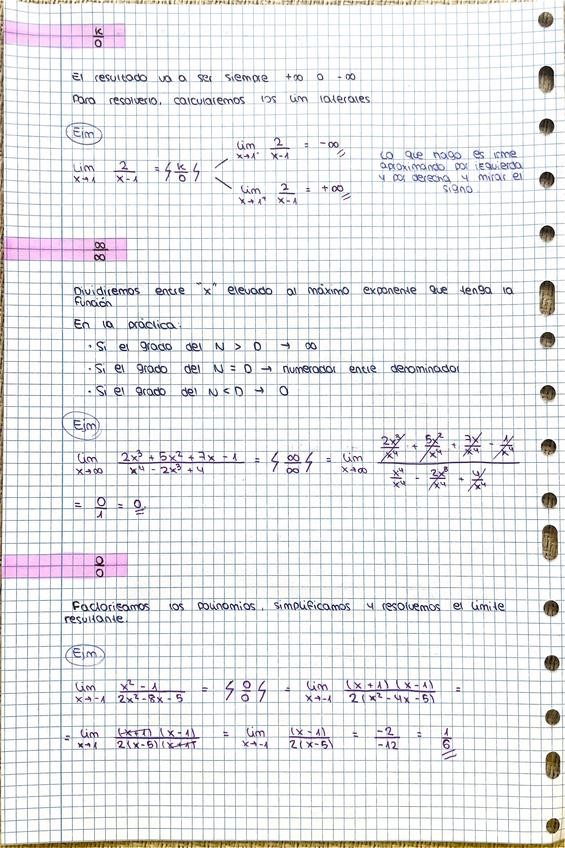 k/0
El resultado va a ser siempre +∞ o -∞
Para resolverlo, calcularemos los lim laterales
Ejm
lim x→1 2/x-1 = ϟ k/0 ϟ
lim x→1⁻ 2/x-1 = -∞
lim x→1⁺ 2/x-1 = +∞
Lo que hago es irme
aproximando por izquierda
y por derecha y mirar el
signo
∞/∞
Dividiremos entre "x" elevado al máximo exponente que tenga la
función
En la práctica:
· Si el grado del N > D → ∞
· Si el grado del N = D → numerador entre denominador
· Si el grado del N < D → 0
Ejm
lim x→∞ 2x³ + 5x² + 7x - 1 / x⁴ - 2x³ + 4 = ϟ ∞/∞ ϟ = lim x→∞ 2x³/x⁴ + 5x²/x⁴ + 7x/x⁴ - 1/x⁴ / x⁴/x⁴ - 2x³/x⁴ + 4/x⁴
= 0/1 = 0
0/0
Factorizamos los polinomios, simplificamos y resolvemos el límite
resultante.
Ejm
lim x→-1 x² - 1 / 2x² - 8x - 5 = ϟ 0/0 ϟ = lim x→-1 (x+1) (x-1) / 2(x² - 4x - 5) =
= lim x→1 (x+1) (x-1) / 2(x-5) (x+1) = lim x→-1 (x-1) / 2(x-5) = -2/-12 = 1/6